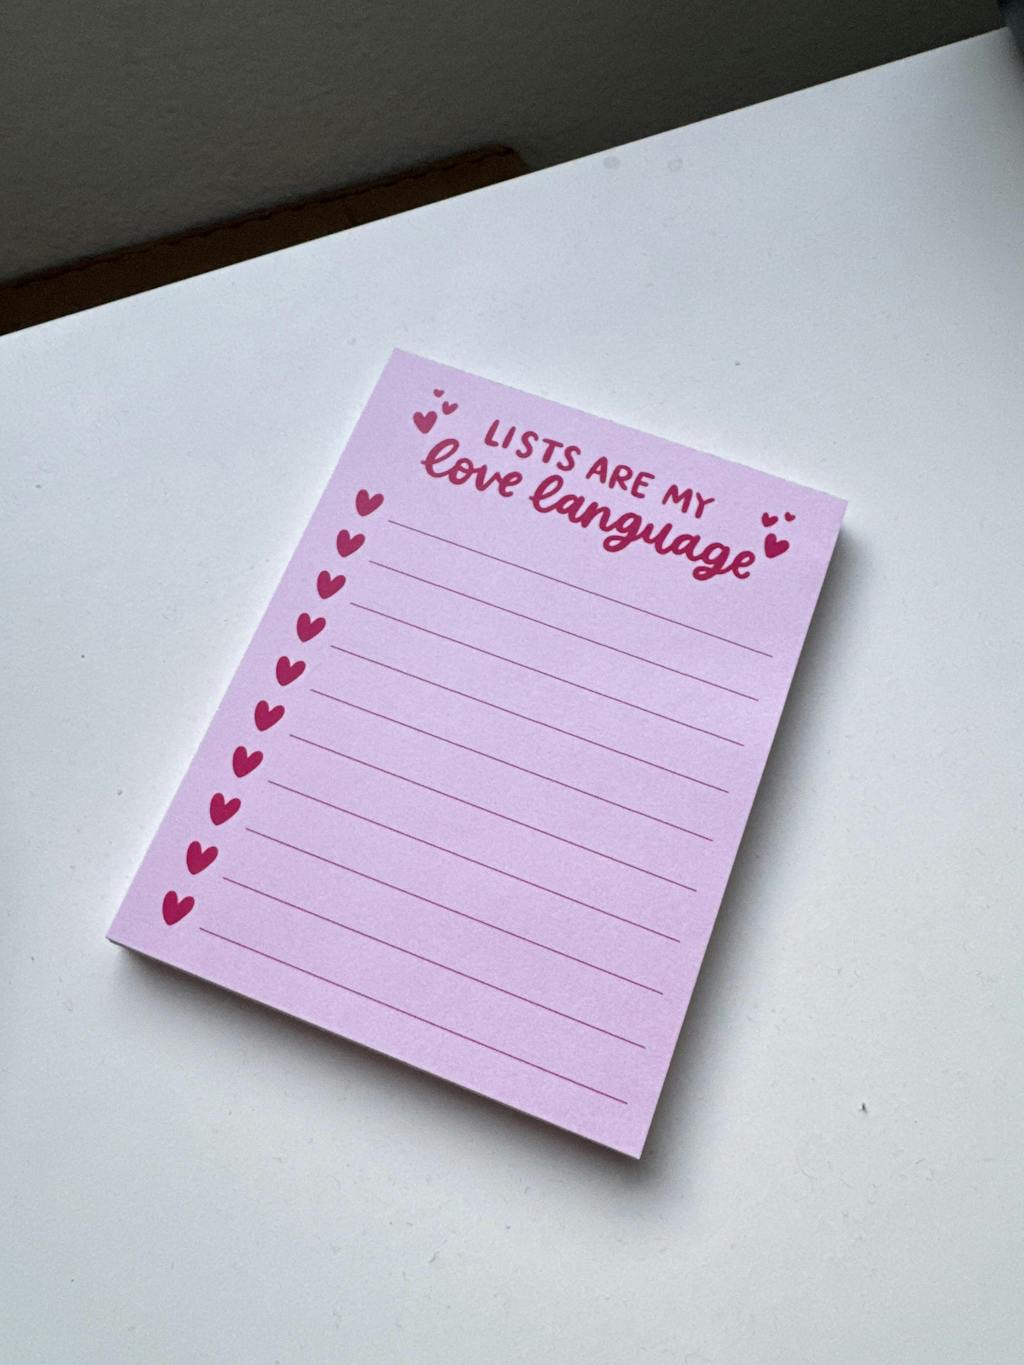 LISTS ARE MY
love language